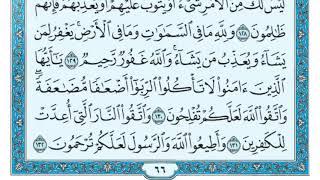 لَيْسَ لَكَ مِنَ ٱلْأَمْرِ شَىْءٌ أَوْ يَتُوبَ عَلَيْهِمْ أَوْ يُعَذِّبَهُمْ فَإِنَّهُمْ
ظَٰلِمُونَ ١٢٨ وَلِلَّهِ مَا فِى ٱلسَّمَٰوَٰتِ وَمَا فِى ٱلْأَرْضِ يَغْفِرُ لِمَن
يَشَآءُ وَيُعَذِّبُ مَن يَشَآءُ وَٱللَّهُ غَفُورٌ رَّحِيمٌ ١٢٩ يَٰٓأَيُّهَا
ٱلَّذِينَ ءَامَنُوا۟ لَا تَأْكُلُوا۟ ٱلرِّبَوٰٓا۟ أَضْعَٰفًا مُّضَٰعَفَةً
وَٱتَّقُوا۟ ٱللَّهَ لَعَلَّكُمْ تُفْلِحُونَ ١٣٠ وَٱتَّقُوا۟ ٱلنَّارَ ٱلَّتِىٓ أُعِدَّتْ
لِلْكَٰفِرِينَ ١٣١ وَأَطِيعُوا۟ ٱللَّهَ وَٱلرَّسُولَ لَعَلَّكُمْ تُرْحَمُونَ ١٣٢
٦٦